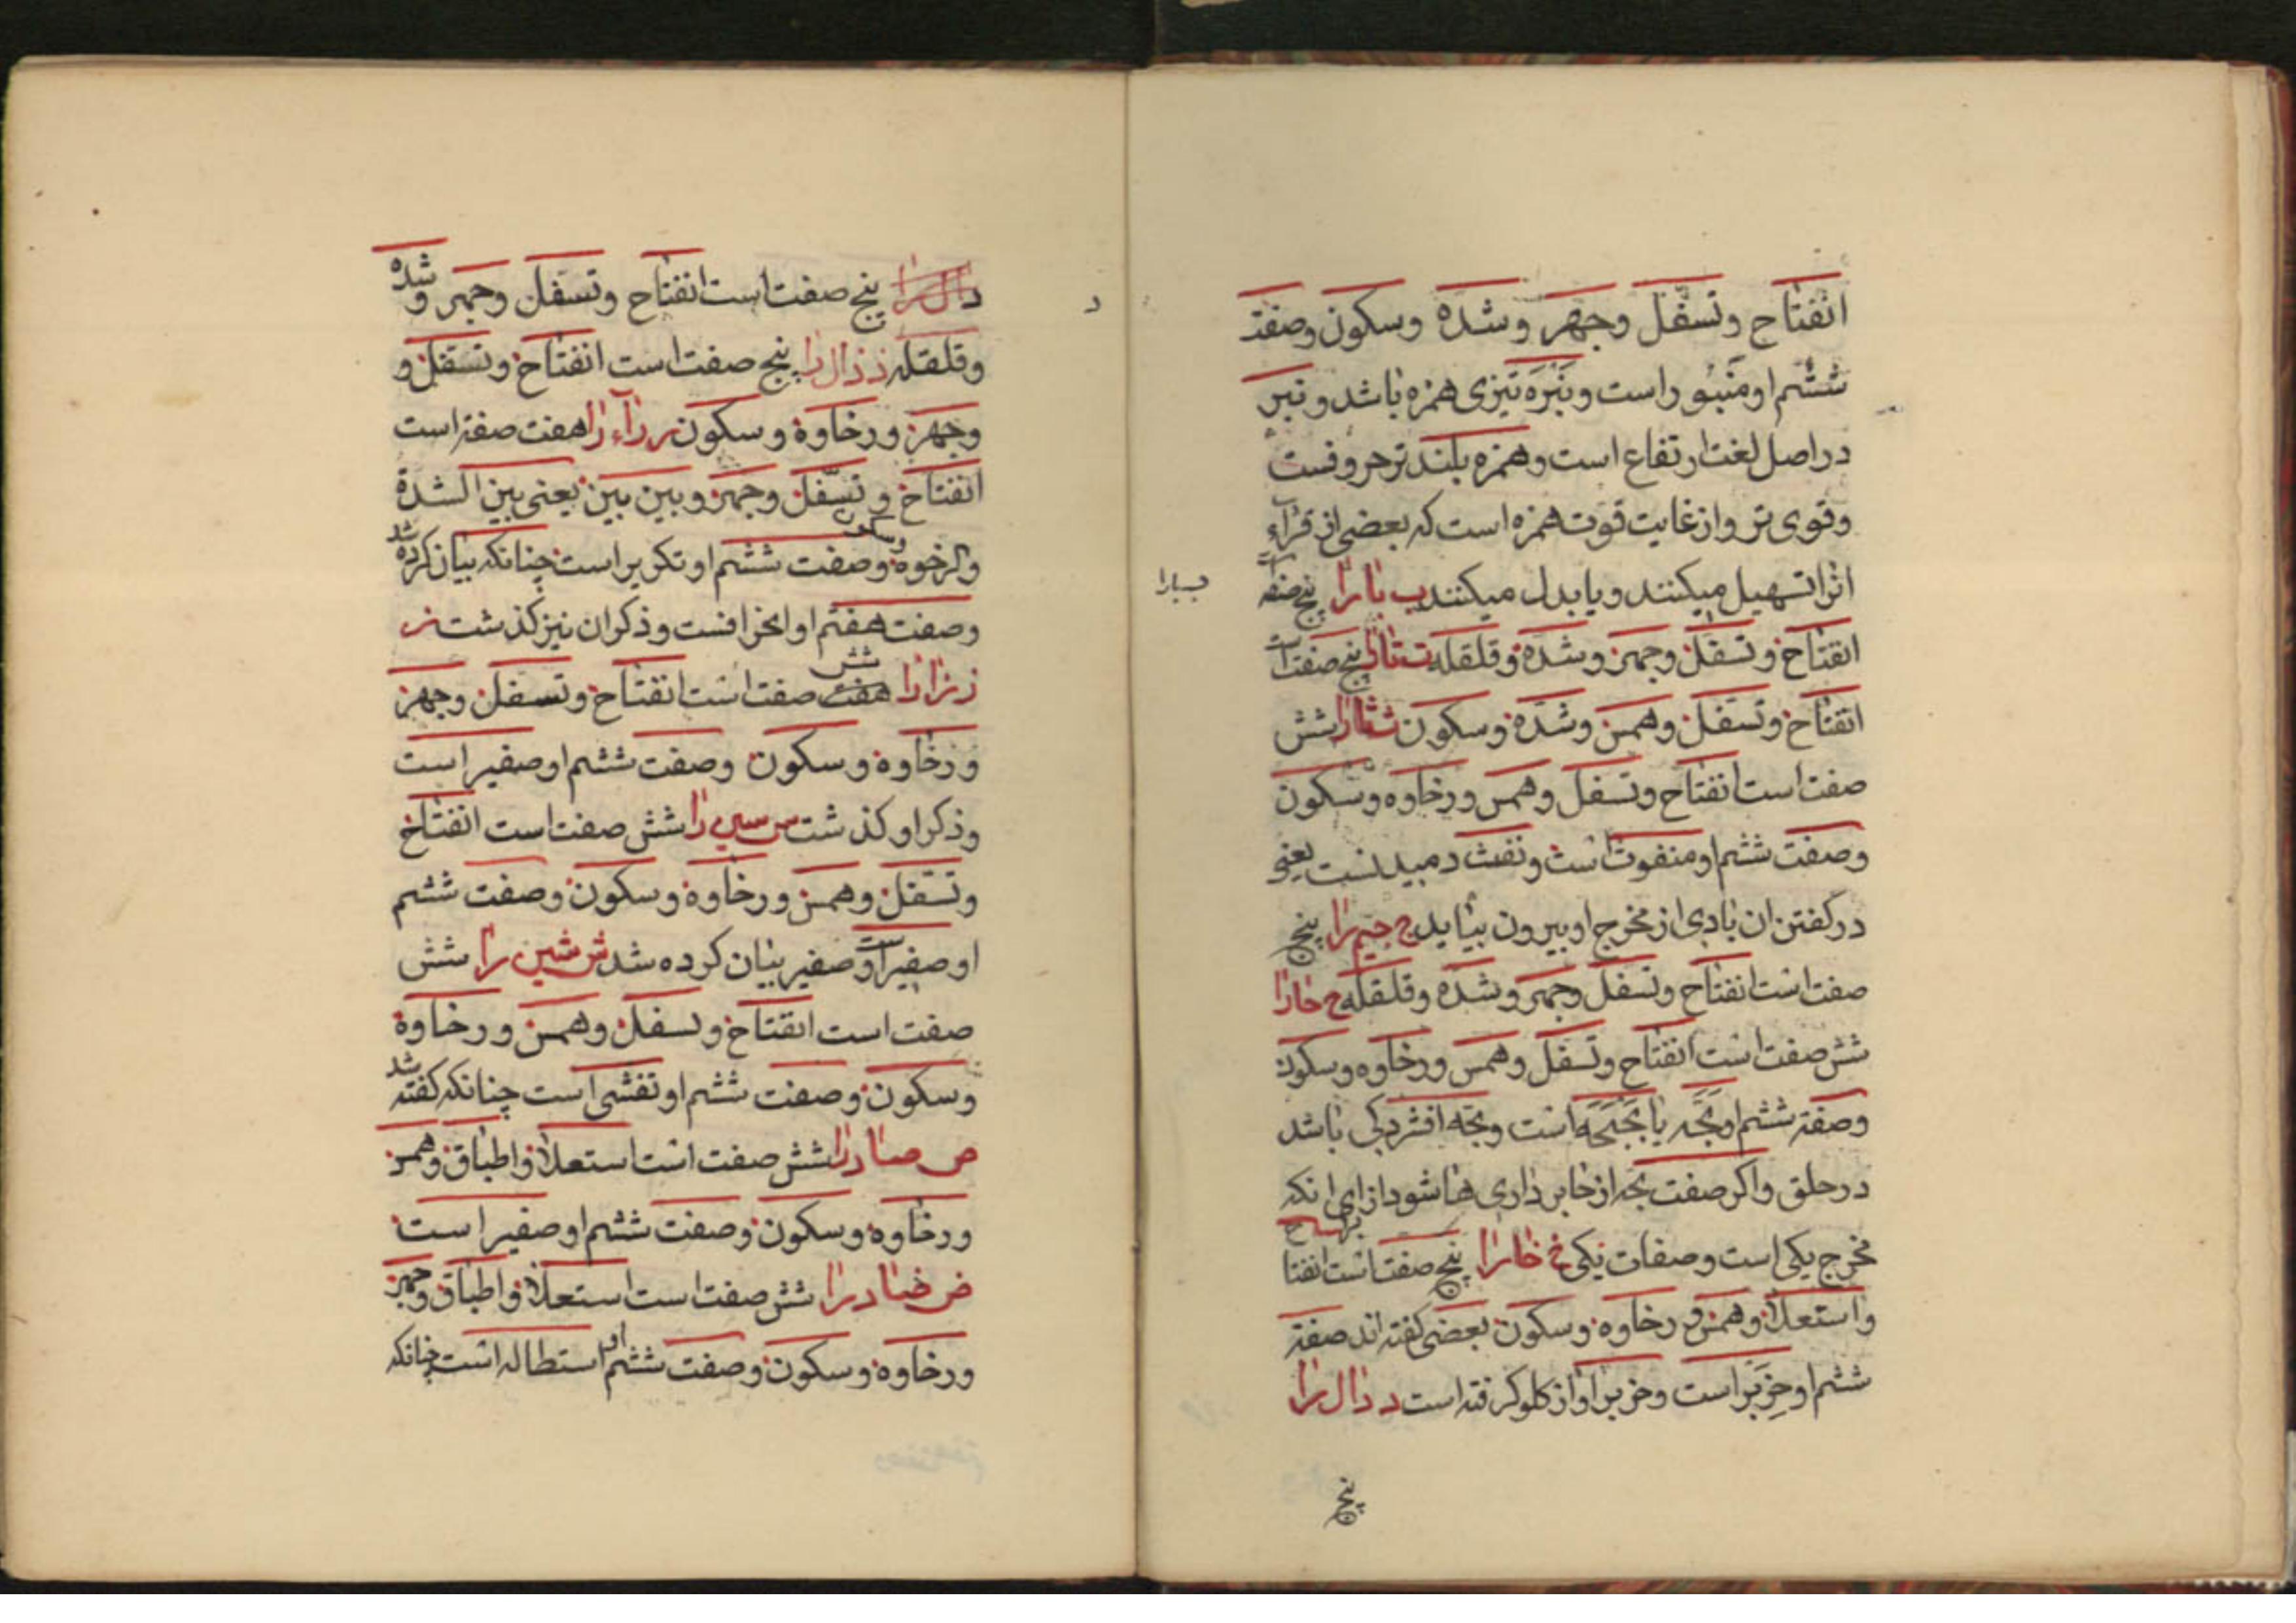 انفتاح و تسفّل و جهر و شدّه و سکون و صفت
ششم او منبور است و نَبرَه تیزی همزه باشد و نبر
در اصل لغت ارتفاع است و همزه بلندتر حروفست
و قوی تر و از غایت قوت همزه است که بعضی از قراء
انرا تسهیل میکنند و یا بدل میکنند ب بارا پنج صفت است
ب بارا
انفتاح و تسفل و جهر و شدّه و قلقله ت تارا پنج صفت است
انفتاح و تسفل و همس و شدّه و سکون ث ثارا شش
صفت است انفتاح و تسفل و همس و رخاوه و سکون
و صفت ششم او منفوث است و نفث دمیدنست یعنی
در کفتن ان بادی از مخرج او بیرون بیاید ج جیم را پنج
صفت است انفتاح و تسفل و جهر و شده و قلقله ح حارا
شش صفت است انفتاح و تسفل و همس و رخاوه و سکون
و صفت ششم او بحّه یا بَحبَحَه است و بحّه افشردکی باشد
در حلق و اکر صفت بحه از حا برداری ها شود از برای انکه
مخرج یکی است و صفات یکی خ خارا پنج صفت است انفتاح
و استعلا و همس و رخاوه و سکون بعضی کفته اند صفت
ششم او خِریر است و خریر اواز کلو کرفته است د دال را
پنج
د
دال را پنج صفت است انفتاح و تسفل و جهر و شده
و قلقله ذ ذال را پنج صفت است انفتاح و تسفل و
و جهر و رخاوة و سکون ر رآء را هفت صفت است
انفتاح و تسفّل و جهر و بین بین یعنی بین الشدة
والرخوه و سکون و صفت ششم او تکریر است چنانکه بیان کرده شد
و صفت هفتم او انحرافست و ذکر ان نیز کذشت ز
ز زا را هفت شش صفت است انفتاح و تسفل و جهر
و رخاوه و سکون و صفت ششم او صفیر است
و ذکر او کذشت س سین را شش صفت است انفتاح
و تسفل و همس و رخاوه و سکون و صفت ششم
او صفیر است و صفیر بیان کرده شد ش شین را شش
صفت است انفتاح و تسفل و همس و رخاوة
و سکون و صفت ششم او تفشی است چنانکه کفته شد
ص صاد را شش صفت است استعلا و اطباق و همس
و رخاوه و سکون و صفت ششم او صفیر است
ض ضاد را شش صفت است استعلا و اطباق و جهر
و رخاوه و سکون و صفت ششم او استطاله است چنانکه